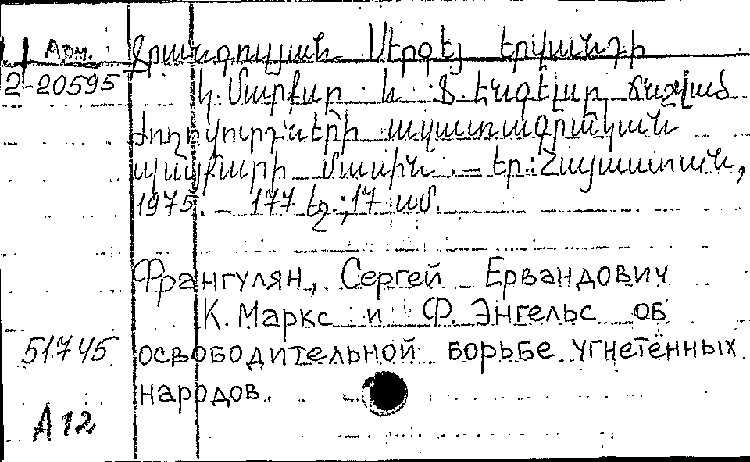 Арм. Ֆրանգուլյան Սերգեյ Երվանդի
2-20595 Կ. Մարքսը և Ֆ. Էնգելսը ճնշված
ժողովուրդների ազատագրական
պայքարի մասին. — Եր.: Հայաստան,
1975. — 177 էջ; 17 սմ.
Франгулян, Сергей Ервандович
К. Маркс и Ф. Энгельс об
51745 освободительной борьбе угнетённых
народов.
А12